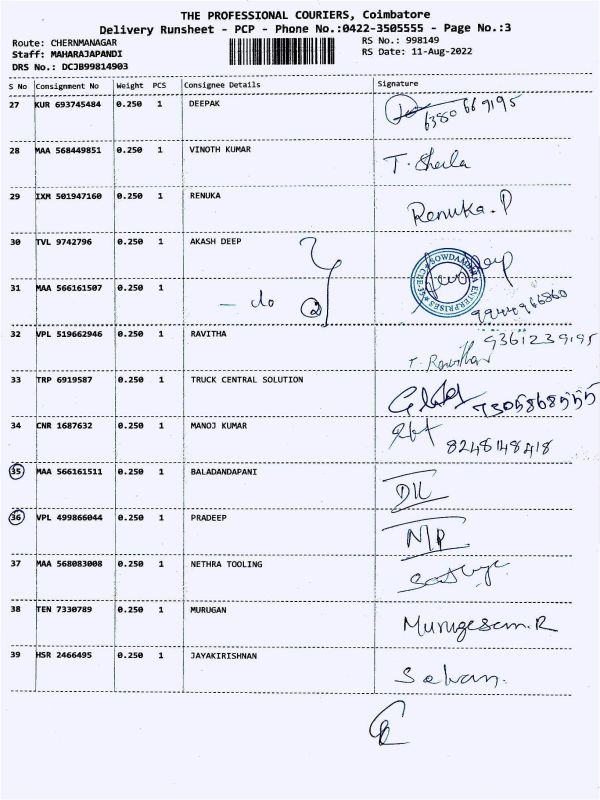 THE PROFESSIONAL COURIERS, Coimbatore
Delivery Runsheet - PCP - Phone No.:0422-3505555 - Page No.:3
Route: CHERNMANAGAR
RS No.: 998149
Staff: MAHARAJAPANDI
RS Date: 11-Aug-2022
DRS No.: DCJB99814903
S No Consignment No Weight PCS Consignee Details Signature
27 KUR 693745484 0.250 1 DEEPAK
6380 669195
28 MAA 568449851 0.250 1 VINOTH KUMAR T. Sheila
29 IXM 501947160 0.250 1 RENUKA Renuka.P
30 TVL 9742796 0.250 1 AKASH DEEP
31 MAA 566161507 0.250 1 - do 2
32 VPL 519662946 0.250 1 RAVITHA 9361239195
33 TRP 6919587 0.250 1 TRUCK CENTRAL SOLUTION 7305868555
34 CNR 1687632 0.250 1 MANOJ KUMAR 8248148418
35 MAA 566161511 0.250 1 BALADANDAPANI D/L
36 VPL 499866044 0.250 1 PRADEEP N/P
37 MAA 568083008 0.250 1 NETHRA TOOLING
38 TEN 7330789 0.250 1 MURUGAN Murugesan.R
39 HSR 2466495 0.250 1 JAYAKIRISHNAN